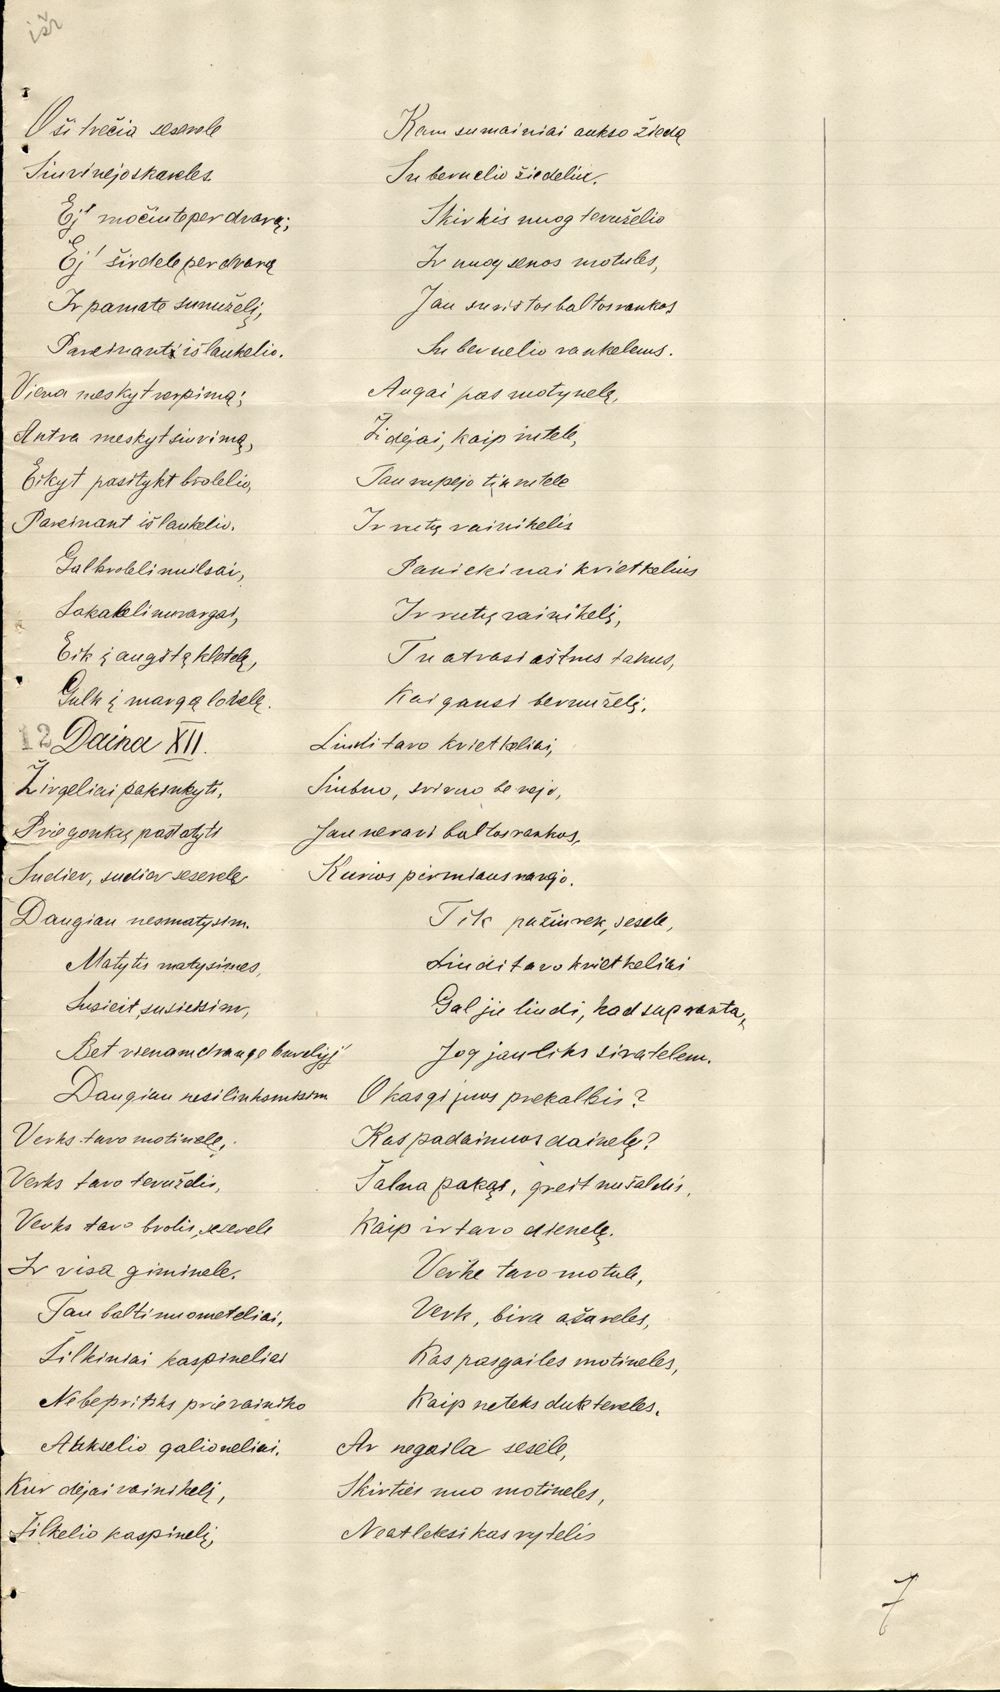 išr
O ši trečia seserele
Siuvinejo skareles.
Ej' močiute per dvarą;
Ej' širdele per dvarą
Ir pamate sunuželį,
Pareinantį iš laukelio.
Viena meskyt verpimą;
Antra meskyt siuvimą,
Eikyt pasitykt brolelio,
Pareinant iš laukelio.
Gal broleli nuilsai,
Sakaleli nuvargai,
Eik į augštą kletelę,
Gulk į margą lovelę.
12 Daina XII.
Žirgeliai pakinkyti,
Prie gonkų pastatyti
Sudiev, sudiev seserelę
Daugiau nesmatysim.
Matytis matysimes,
Susieit susieisim,
Bet vienam drauge burelyj'
Daugiau nesilinksmisim
Verks tavo motinele,
Verks tavo tevuželis,
Verks tavo brolis, seserele
Ir visa giminele.
Tau balti nuometeliai,
Šilkiniai kaspineliai
Nebepritiks prie vainiko
Aukselio galioneliai.
Kur dejai vainikelį,
Šilkelio kaspinelį,
Kam sumainiai aukso žiedą
Su bernelio žiedeliu.
Skirkis nuog tevuželio
Ir nuog senos motules,
Jau surištos baltos rankos
Su bernelio rankelems.
Augai pas motynelę,
Židejai, kaip rutele,
Tau rupejo tik rutele
Ir rutų vainikelis
Paniekinai kvietkelius
Ir rutų vainikelį,
Tu atrasi aštrus takus,
Kai gausi bernuželį.
Liudi tavo kvietkeliai,
Siubuo, svirno be vejo,
Jau neravi baltos rankos,
Kurios pirmiaus ravejo.
Tik pažiurek, sesele,
Liudi tavo kvietkeliai
Gal jie liudi, kad supranta,
Jog jau liks siratelem.
O kasgi juos prekalbis?
Kas padainuos dainelę?
Šalna pakąs, greit nušaldis,
Kaip ir tavo dienelę.
Verke tavo motule,
Verk, bira ašareles,
Kas pasgailes motineles,
Kaip neteks duktereles.
Ar negaila sesele,
Skirties nuo motineles,
Neatleksi kas rytelis
7